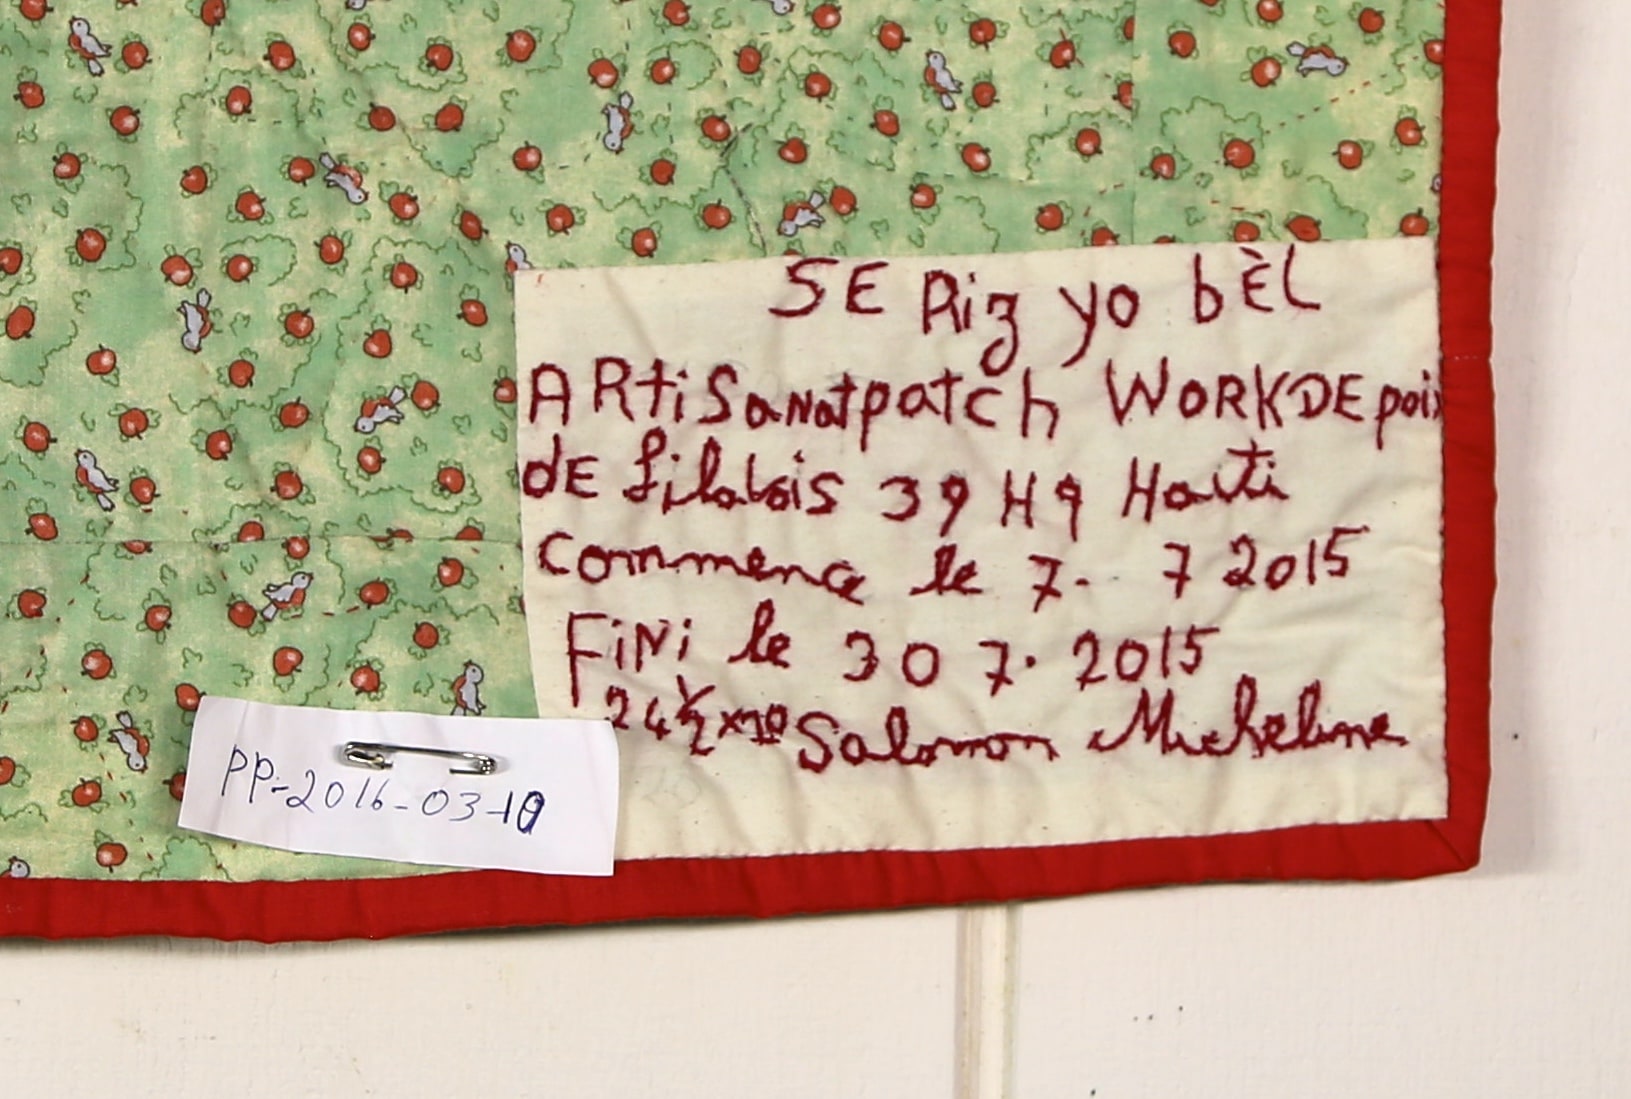 SE Riz yo bÈL
ARtiSanatpatch WORKDEpoix
dE Lilavois 39 H9 Haiti
commence le 7. 7 2015
FiNi le 30 7. 2015
24 1/2 x 30 Salomon Micheline
PP-2016-03-10